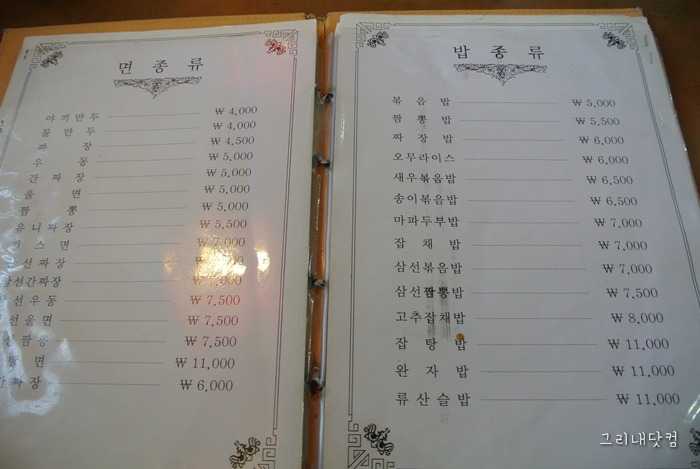 면종류
야끼만두 ₩ 4,000
물만두 ₩ 4,000
짜장 ₩ 4,500
우동 ₩ 5,000
간짜장 ₩ 5,000
울면 ₩ 5,000
짬뽕 ₩ 5,000
유니짜장 ₩ 5,500
기스면 ₩ 7,000
선짜장 ,000
삼선간짜장 ,000
선우동 ₩ 7,500
선울면 ₩ 7,500
선짬뽕 ₩ 7,500
면 ₩ 11,000
짜장 ₩ 6,000
밥종류
볶음밥 ₩ 5,000
짬뽕밥 ₩ 5,500
짜장밥 ₩ 6,000
오무라이스 ₩ 6,000
새우볶음밥 ₩ 6,500
송이볶음밥 ₩ 6,500
마파두부밥 ₩ 7,000
잡채밥 ₩ 7,000
삼선볶음밥 ₩ 7,000
삼선짬뽕밥 ₩ 7,500
고추잡채밥 ₩ 8,000
잡탕밥 ₩ 11,000
완자밥 ₩ 11,000
류산슬밥 ₩ 11,000
그리내닷컴